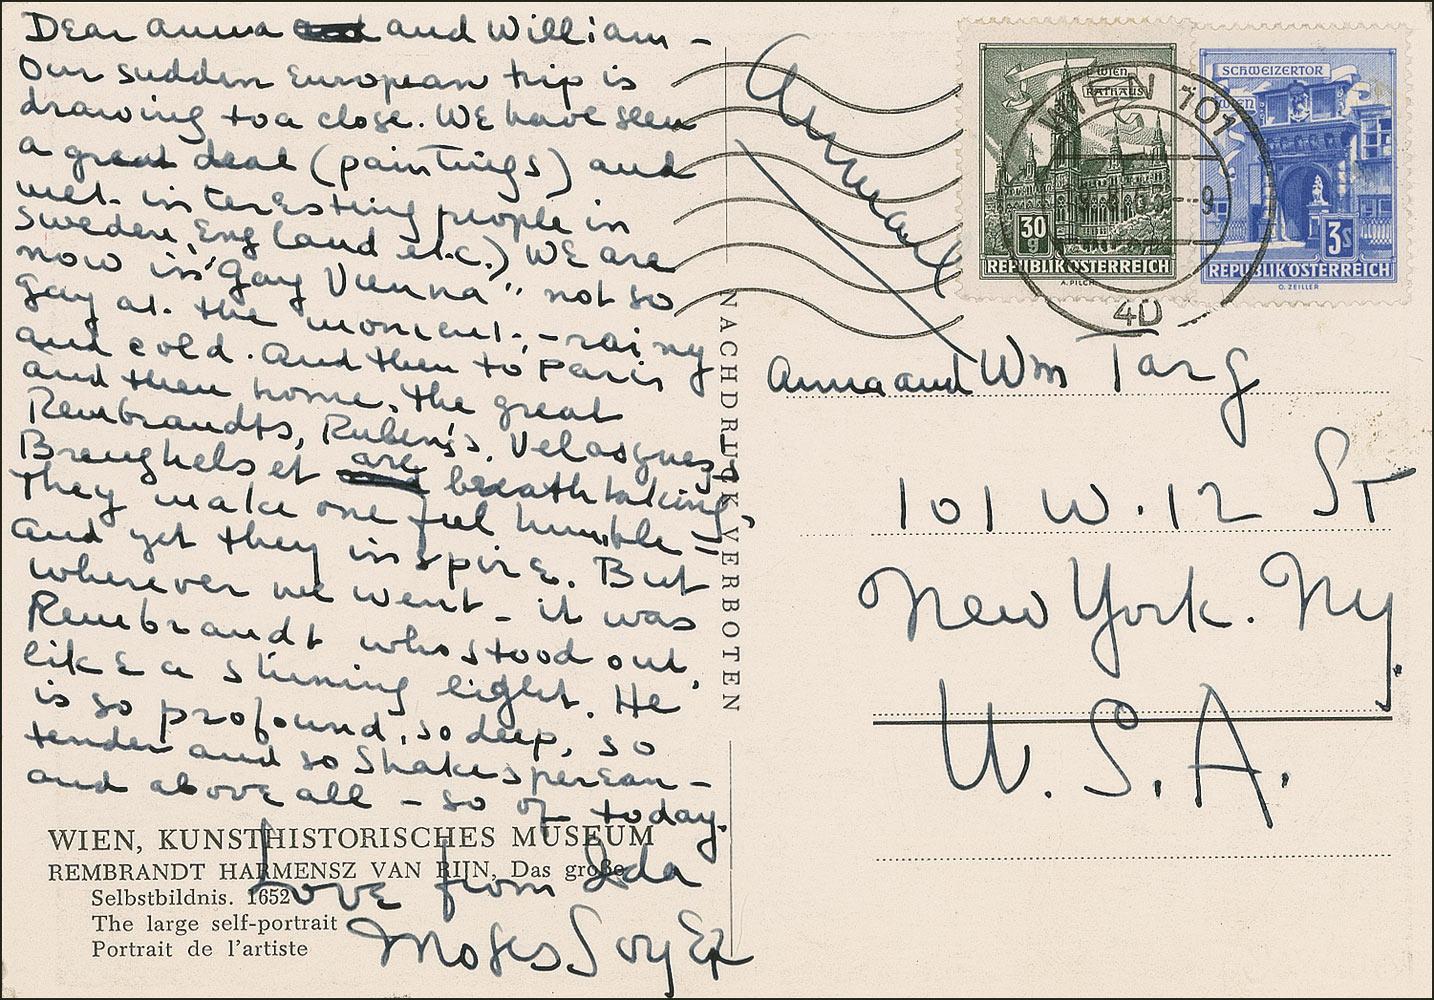 Dear Anna and William –
Our sudden European trip is
drawing to a close. We have seen
a great deal (paintings) and
met interesting people in
Sweden, England etc.) We are
now in "Gay Vienna" not so
gay at the moment, – rainy
and cold. And then to Paris
and then home. The great
Rembrandts, Rubens's, Velasques,
Breughels et are breathtaking,
They make one feel humble –
and yet they inspire. But
wherever we went – it was
Rembrandt who stood out,
like a shining light. He
is so profound, so deep, so
tender and so Shakesperean –
and above all – so of today.
Love from Ida
Moses Soyer
WIEN, KUNSTHISTORISCHES MUSEUM
REMBRANDT HARMENSZ VAN RIJN, Das große
Selbstbildnis. 1652
The large self-portrait
Portrait de l'artiste
NACHDRUCK VERBOTEN
Airmail
WIEN
RATHAUS
30 g
REPUBLIK ÖSTERREICH
A. PILCH
SCHWEIZERTOR
WIEN
3 S
REPUBLIK ÖSTERREICH
O. ZEILLER
WIEN 101
4D
Anna and Wm Targ
101 W. 12 St
New York. NY
U.S.A.